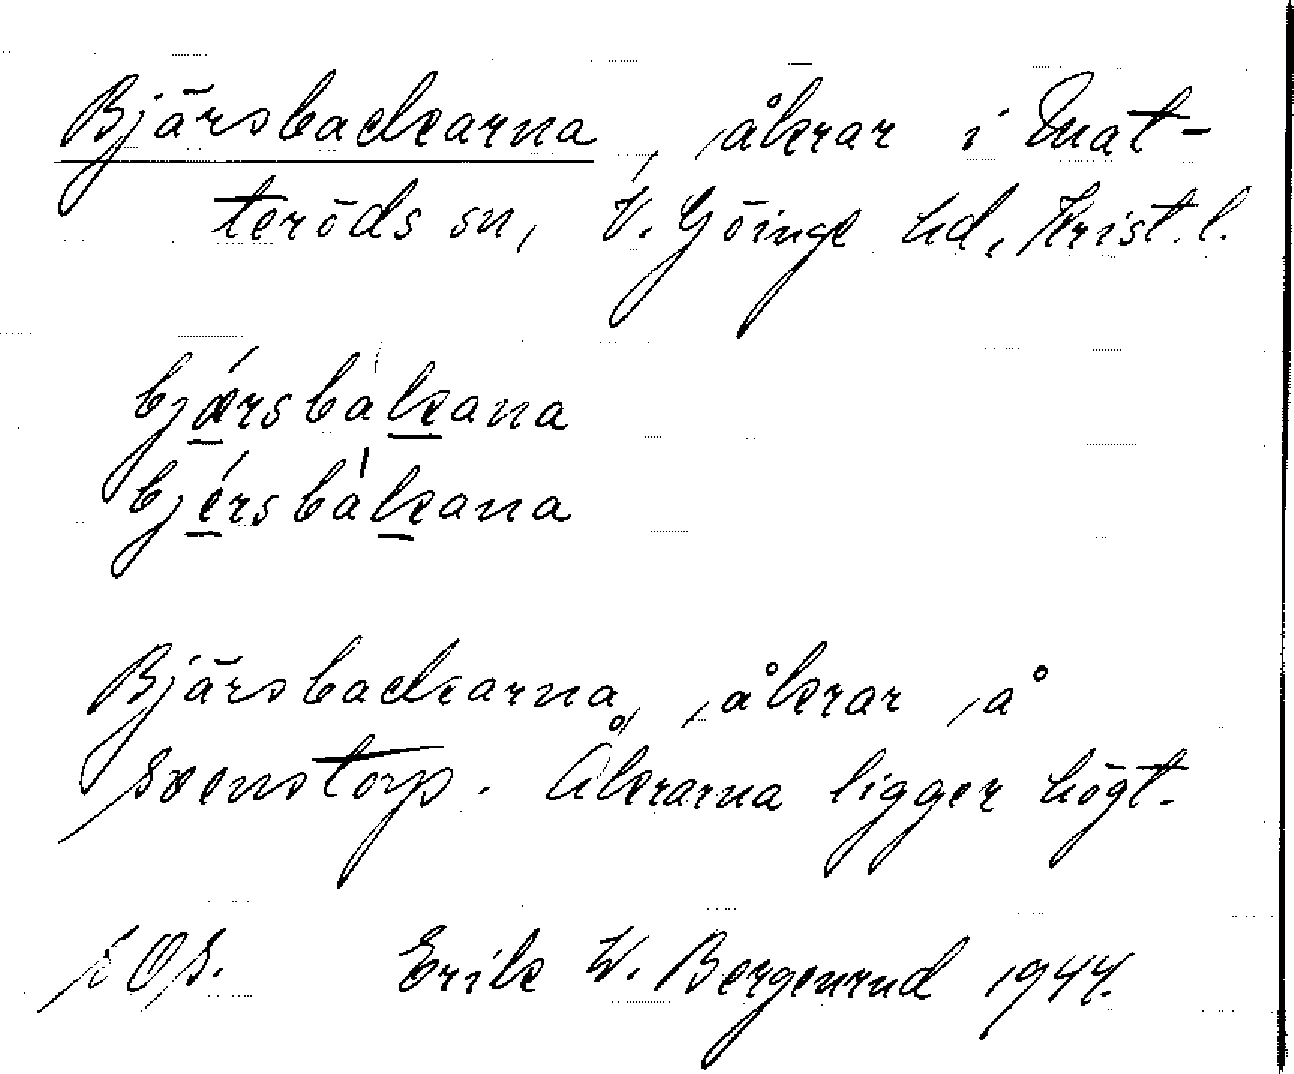 Bjärsbackarna, åkrar i Mat-
teröds sn, V. Göinge hd, Krist. l.
bjǽrsbàkana
bjérsbàkana
Bjärsbackarna, åkrar å
Svenstorp. Åkrarna ligger högt.
Erik W. Bergenrud 1944.